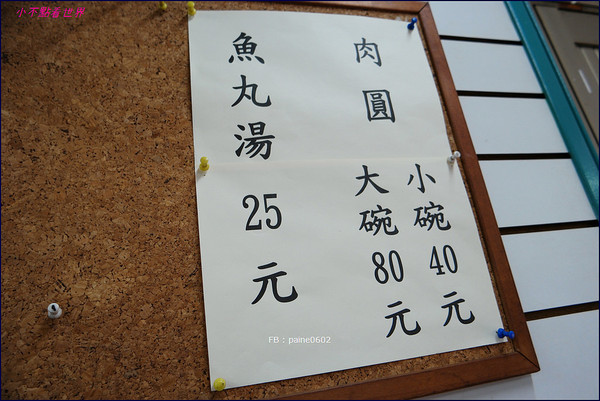 小不點a世界
肉圓
小碗40元
大碗80元
魚丸湯 25 元
FB：paine0602